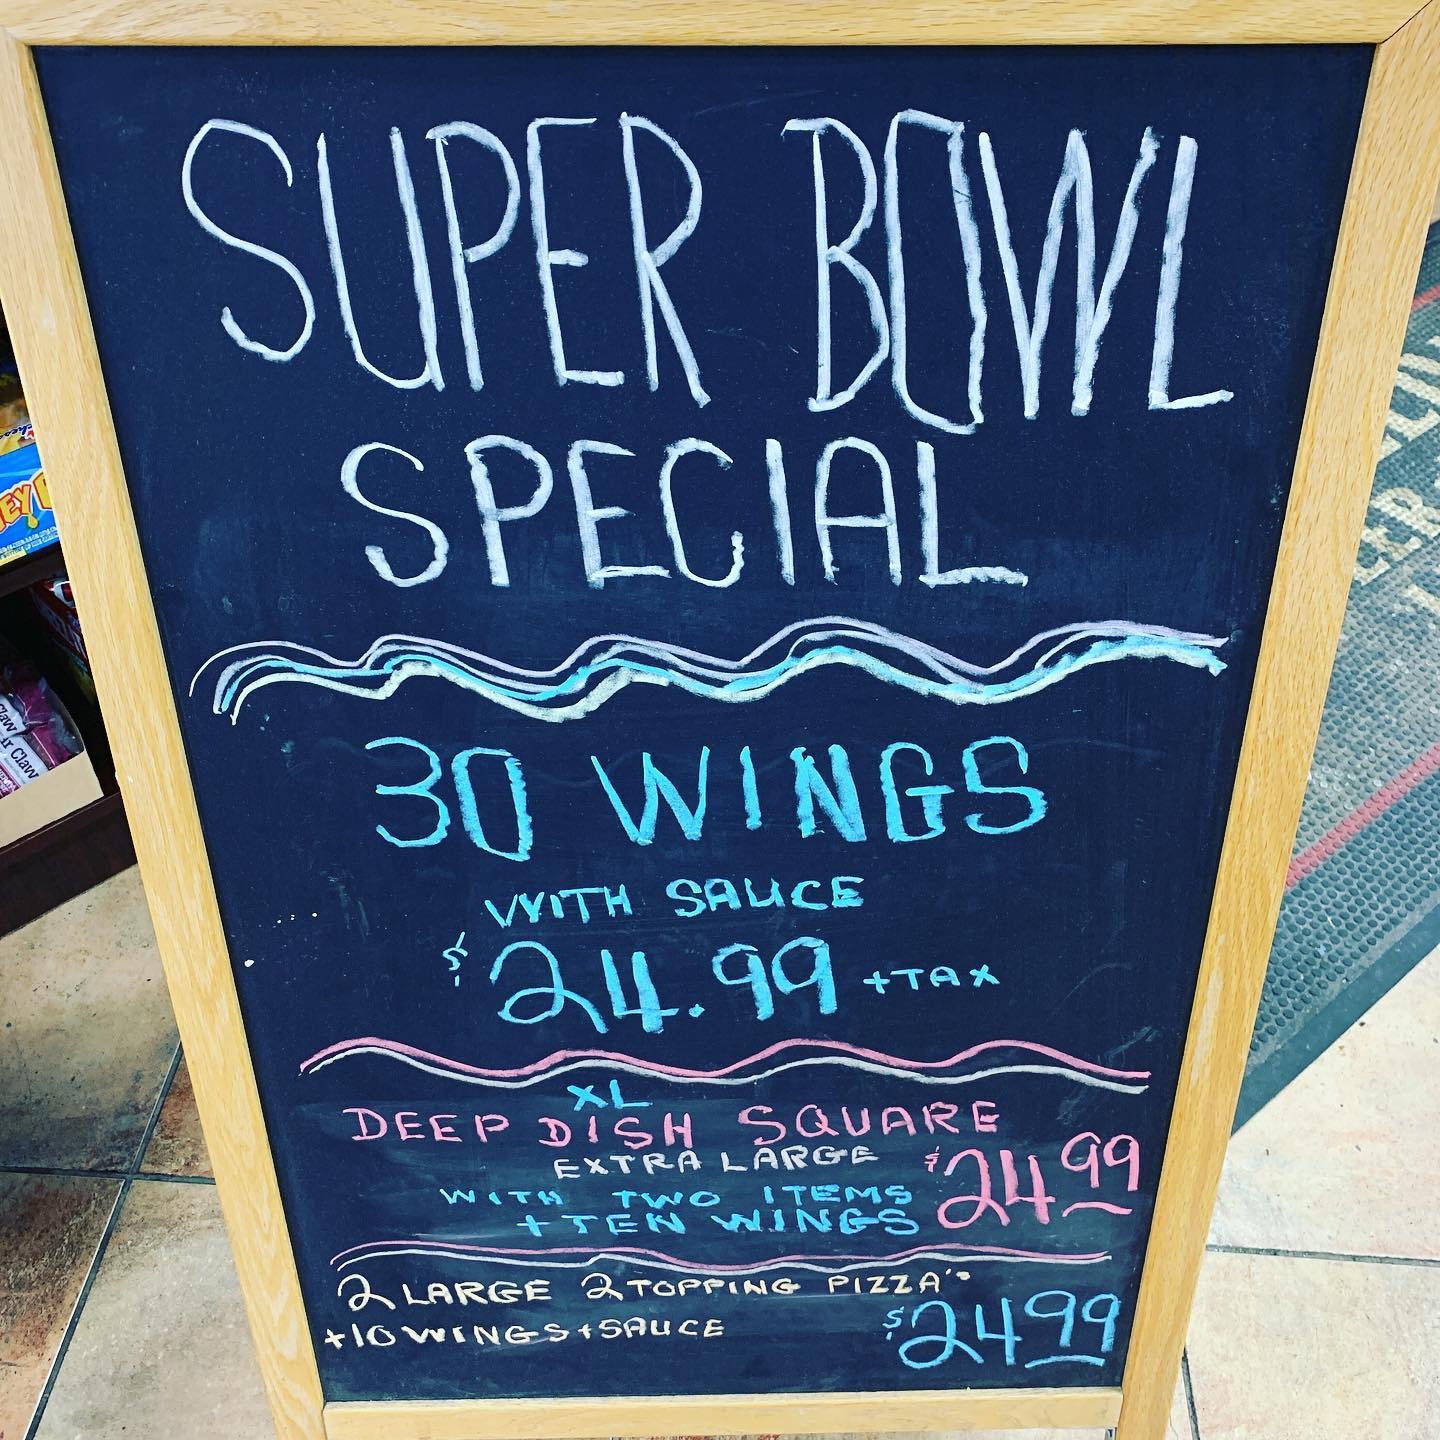 SUPER BOWL
SPECIAL
30 WINGS
WITH SAUCE
$24.99 +TAX
XL
DEEP DISH SQUARE
EXTRA LARGE
$24.99
WITH TWO ITEMS
+TEN WINGS
2 LARGE 2 TOPPING PIZZA'S
+10 WINGS+SAUCE
$24.99
Claw
Claw